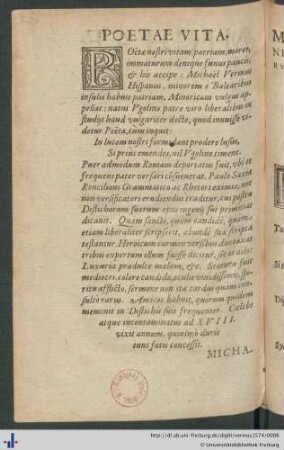 POETAE VITA.
Poëtæ nostri vitam, patriam, mores,
immaturum denique funus paucis,
& his accipe: Michaël Verinus
Hispanus, minorem è Balearibus
insulis habuit patriam, Minoricam vulgus ap-
pellat: natus Vgolino patre viro liberalibus in
studijs haud vulgariter docto, quod innuisse vi-
detur Poëta, cum inquit:
In lucem nostri formidant prodere lusus,
Si prius emendes, nil Vgoline timent.
Puer admodum Romam deportatus fuit, vbi et
frequens pater versari consueuerat. Paulo Saxia
Roncilioni Grammatico ac Rhetori eximio, nec
non versificatori erudiendus traditur, cui postea
Distichorum suorum opus ingenij sui primitias
dicauit. Quàm sanctè, quàm candidè, quàm
etiam liberaliter scripserit, abundè sua scripta
testantur. Heroicum carmen versibus duntaxat
tribus expertum illum fuisse dicitur, sic
Luxuria praedulce malum, &c. Statura fuit
mediocri, colore candido, oculis
tis afflictis, sermone non ita tardus quàm con-
sultò rarus. Amicos habuit, quorum quidem
meminit in Distichis suis frequenter. Cælebs
atque incontaminatus ad XVIII.
vixit annum, quinimò
tunc fatis concessit.
MICHA-
http://dl.ub.uni-freiburg.de/diglit/verinus1574/0006
© Universitätsbibliothek Freiburg